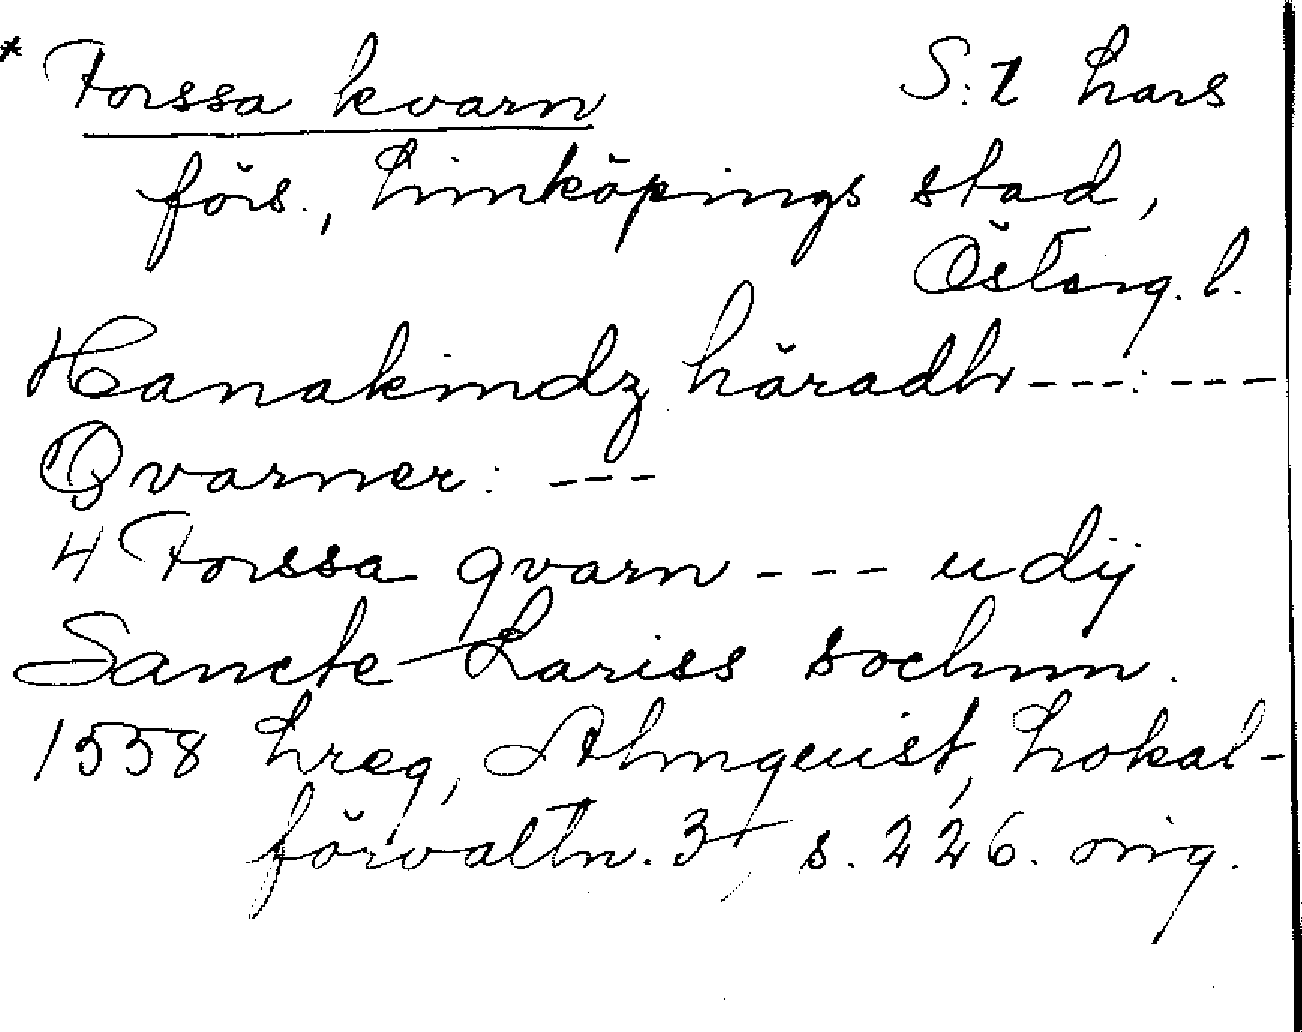 * Forssa kvarn S:t Lars
förs., Linköpings stad,
Österg. l.
Hanakindz häradh ---:---
Qvarner: ---
4 Forssa qvarn --- udij
Sancte Lariss sochnn.
1558 Lreg, Almquist, Lokal-
förvaltn. 3, s. 226. orig.